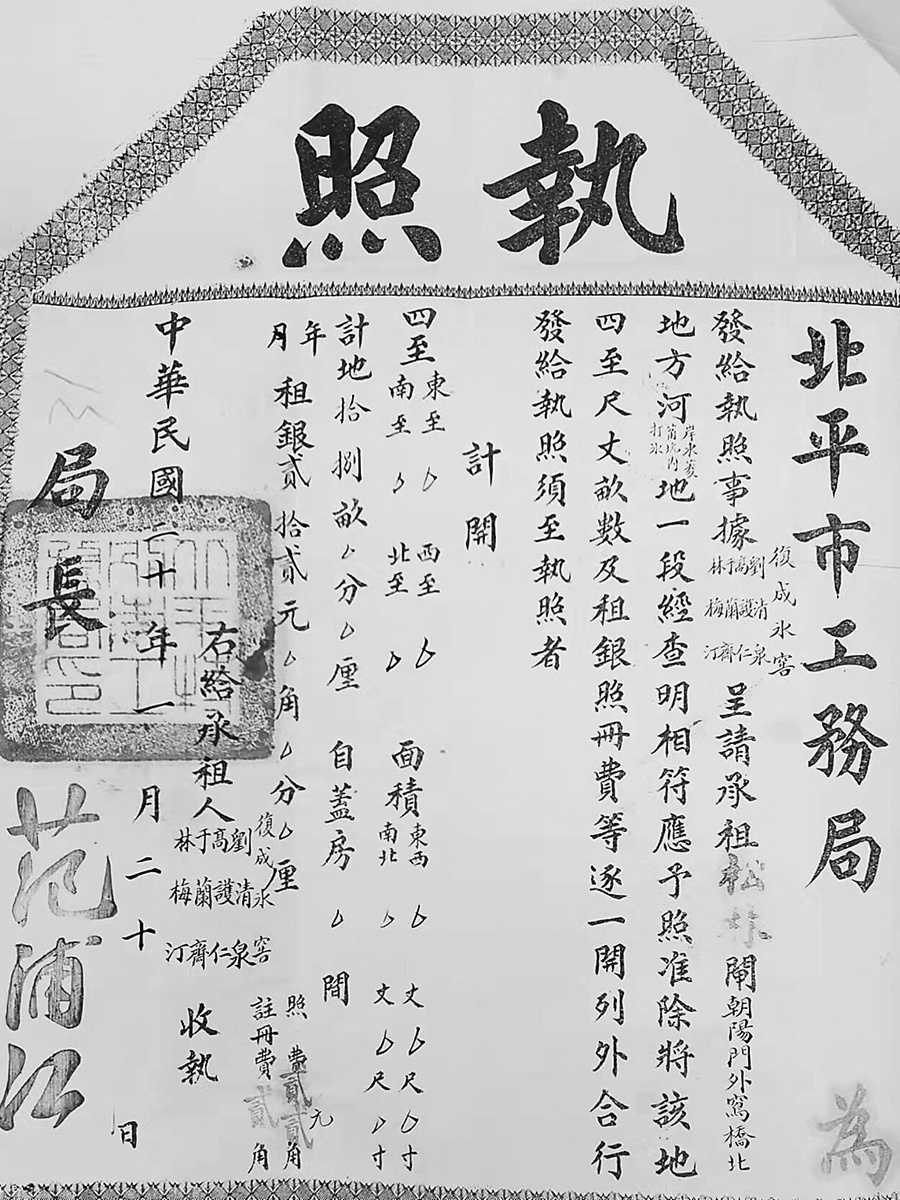 執照
北平市工務局
為
發給執照事據復成氷窖
劉清泉
高護仁
于蘭齊
林梅汀
呈請承祖
閘朝陽門外窩橋北
地方河
地一段經查明相符應予照准除將該地
四至尺丈畝數及租銀照冊費等逐一開列外合行
發給執照須至執照者
計開
四至
東至
西至
南至
北至
面積
東西
丈
尺
寸
南北
丈
尺
寸
計地拾捌畝
分
厘
自蓋房
間
年
月
租銀貳拾貳元
角
分
厘
照費貳元貳角
註冊費貳角
右給承租人
復成氷窖
劉清泉
高護仁
于蘭齊
林梅汀
收執
中華民國二十年一月二十日
局長
范浦江